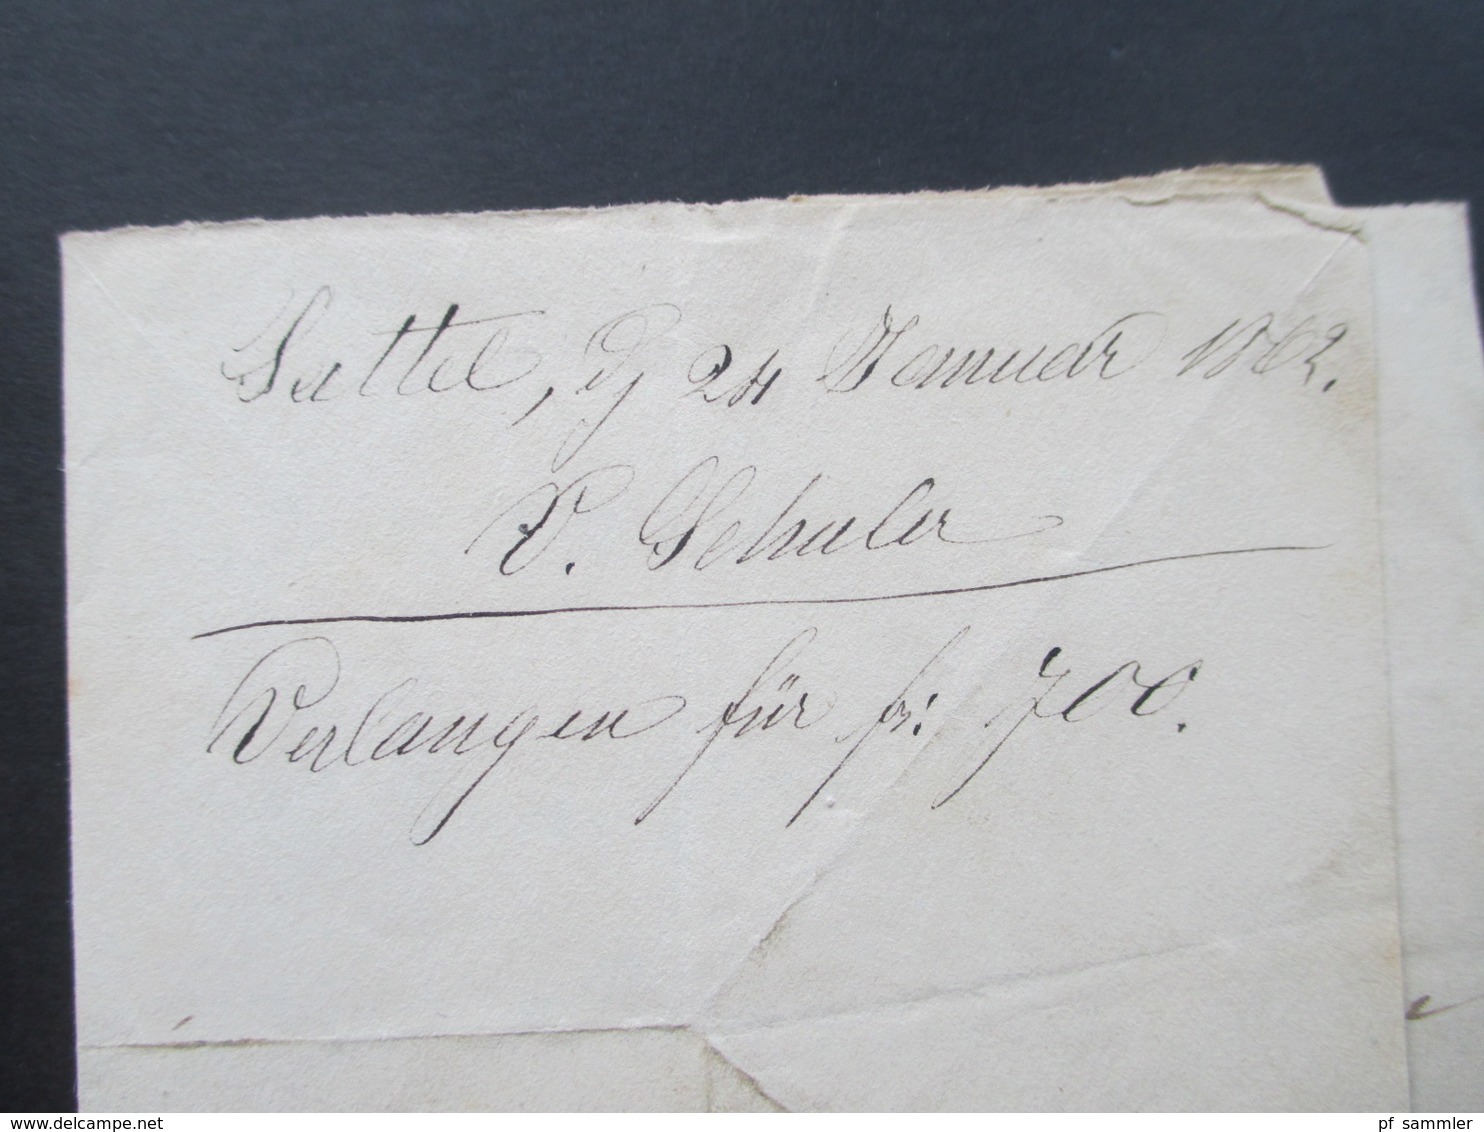 Sattel, d 24 Januar 1862.
D. Schuler
Verlangen für fr: 700.
delcampe.net
pf_sammler